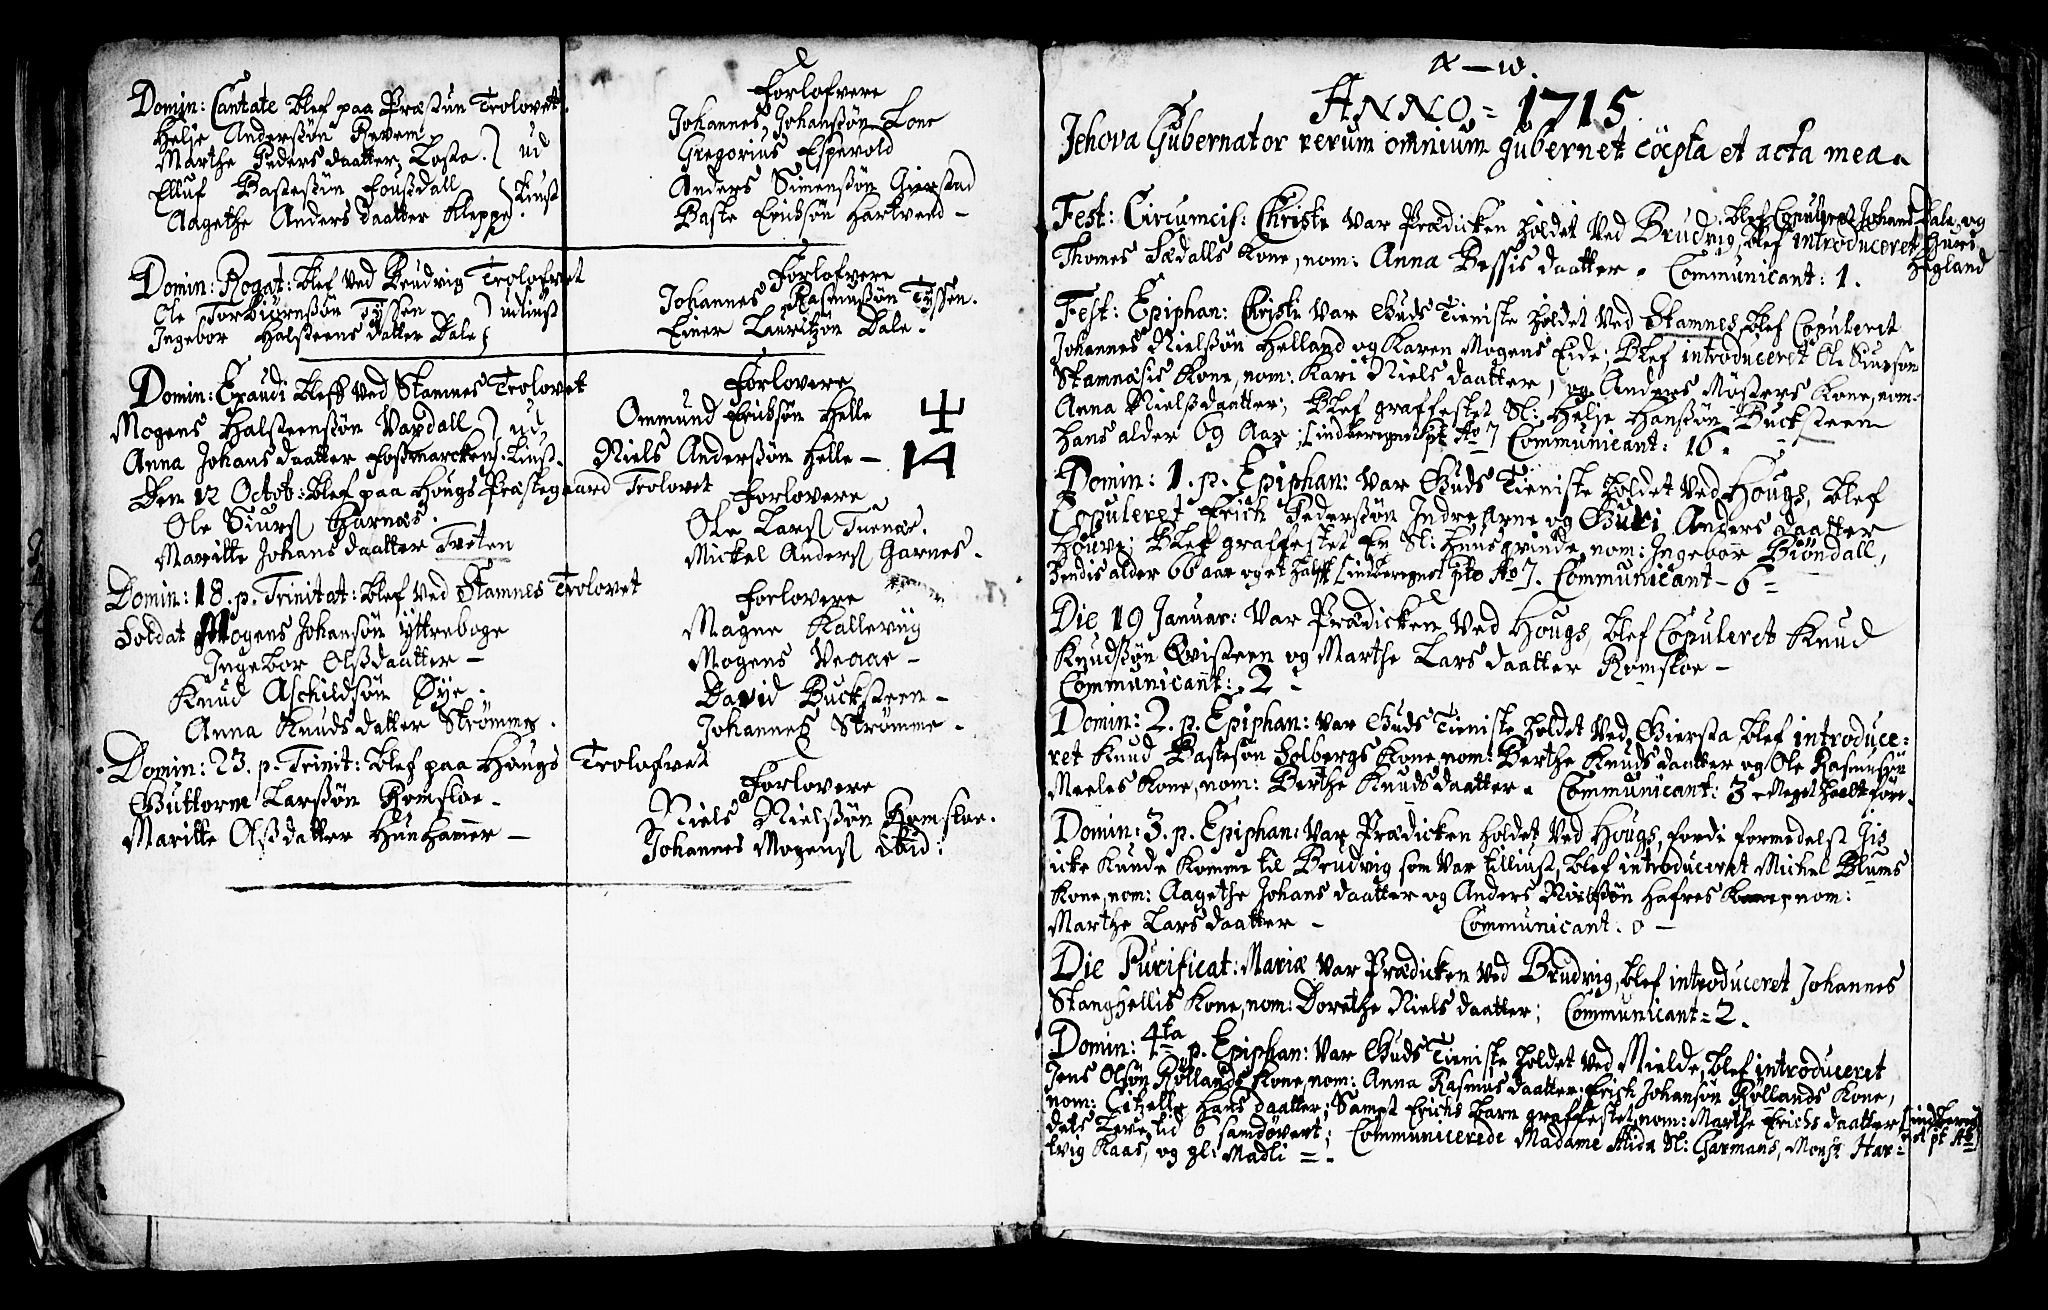 Domin: Cantate blef paa Præstun Trolovet.
Helje Anderssøn Revem
Marthe Peders daatter Losta. } ud
Elluf Bastessøn Foussdall
Aagethe Anders daatter Kleppe. } Liust
Forlofvere
Johannes Johanssøn Lone
Gregorius Espevold
Anders Simenssøn Gierstad
Baste Erichsøn Hartveed -
Domin: Rogat: blef ved Brudvig Trolofvet
Ole Torbiørnsøn Tyssen
Ingebor Halsteens datter Dale } udliust
Forlofvere
Johannes Rasmussøn Tyssen.
Einer Lauritzøn Dale.
Domin: Exaudi bleff ved Stamnes Trolovet
Mogens Halsteenssøn Vardall } ud
Anna Johans daatter Fossmarcken. Liust.
Forlovere
Ommund Erichsøn Helle
Niels Anderssøn Helle - 14
Den 12 Octob: blef paa Hougs Præstegaard Trolovet
Ole Siurss Harnæs.
Maritte Johans daatter Tveten
Forlovere
Ole Larss Tuenæs.
Mickel Anderss Garnes.
Domin: 18. p. Trinitat: blef ved Stamnes Trolovet
Soldat Mogens Johansøn Yttreboge
Ingebor Olssdaatter -
Knud Aschildsøn Øye.
Anna Knuds datter Strømme.
Forlovere
Magne Kallevåg
Mogens Veaae -
David Bucksteen -
Johannes Strømme -
Domin: 23. p. Trinit: blef paa Hougs Trolofvet
Guttorme Larssøn Romsloe -
Maritte Olssdatter Hunhamer -
Forlovere
Niels Nielssøn Romsloe.
Johannes Mogenss ibid:
A - w.
ANNO = 1715.
Jehova Gubernator rerum omnium gubernet cöepta et acta mea.
Fest: Circumcis: Christi var Prædicken holdet ved Brudvig, blef Copuleret Johans Dale og Gures Høgland
blef introduceret
Thomes Sædalls Kone, nom: Anna Bessis daatter. Communicant: 1.
Fest: Epiphan: Christi var Guds Tieniste holdet ved Stamnes, blef Copuleret
Johannes Nielssøn Helland og Karen Mogens Eide; Blef introduceret Ole Siurson
Stamnæsis Kone, nom: Kari Niels daatter, og Anders Møsters Kone, nom:
Anna Nielssdaatter; Blef graffestet Sl: Helje Hanssøn Bucksteen
hans alder 69 Aar; Communicant: 16.
Domin: 1. p. Epiphan: var Guds Tieniste holdet ved Hougs, blef
Copuleret Erich Pederssøn Indre Arne og Guri Anders daatter
Houve; Blef graffestet En Sl: Huusqvinde, nom: Ingebor Biøndall,
hendis alder 66 aar og et halft Lindberegnet pto No 7. Communicant - 6 =
Die 19 Januar: var Prædicken ved Hougs, blef Copuleret Knud
Knudssøn Qvisteen og Marthe Lars daatter Romsloe -
Communicant: 2 -
Domin: 2. p. Epiphan: var Guds Tieniste holdet ved Giersta blef introduce:
ret Knud Bastesøn Solbergs Kone, nom: Berthe Knuds daatter og Ole Rasmussøn
Meeles Kone, nom: Berthe Knuds daatter. Communicant: 3
Domin: 3. p. Epiphan: var Prædicken holdet ved Hougs, fordi formedelst Jis
icke kunde komme til Brudvig som var tilliust, blef introduceret Mickel Blums
Kone, nom: Aagethe Johans daatter og Anders Nielssøn Hafres Kone, nom:
Marthe Lars daatter - Communicant: 0 -
Die Purificat: Mariæ var Prædicken ved Brudvig, blef introduceret Johannes
Stanghellis Kone, nom: Dorethe Niels daatter; Communicant = 2.
Domin: 4ta p. Epiphan: var Guds Tieniste holdet ved Mielde, blef introduceret
Jens Olsøn Røllands Kone, nom: Anna Rasmus daatter; Erich Johansøn Røllands Kone,
nom: Citzelle Hans daatter; Sampt Erichs barn graffestet, nom: Marthe Erichs daatter
dets Leve tid 6 samdøvert; Communicerede Madame Sl: Garmans, Monsr Har=
tvig Kaas, og gl: Madli =.